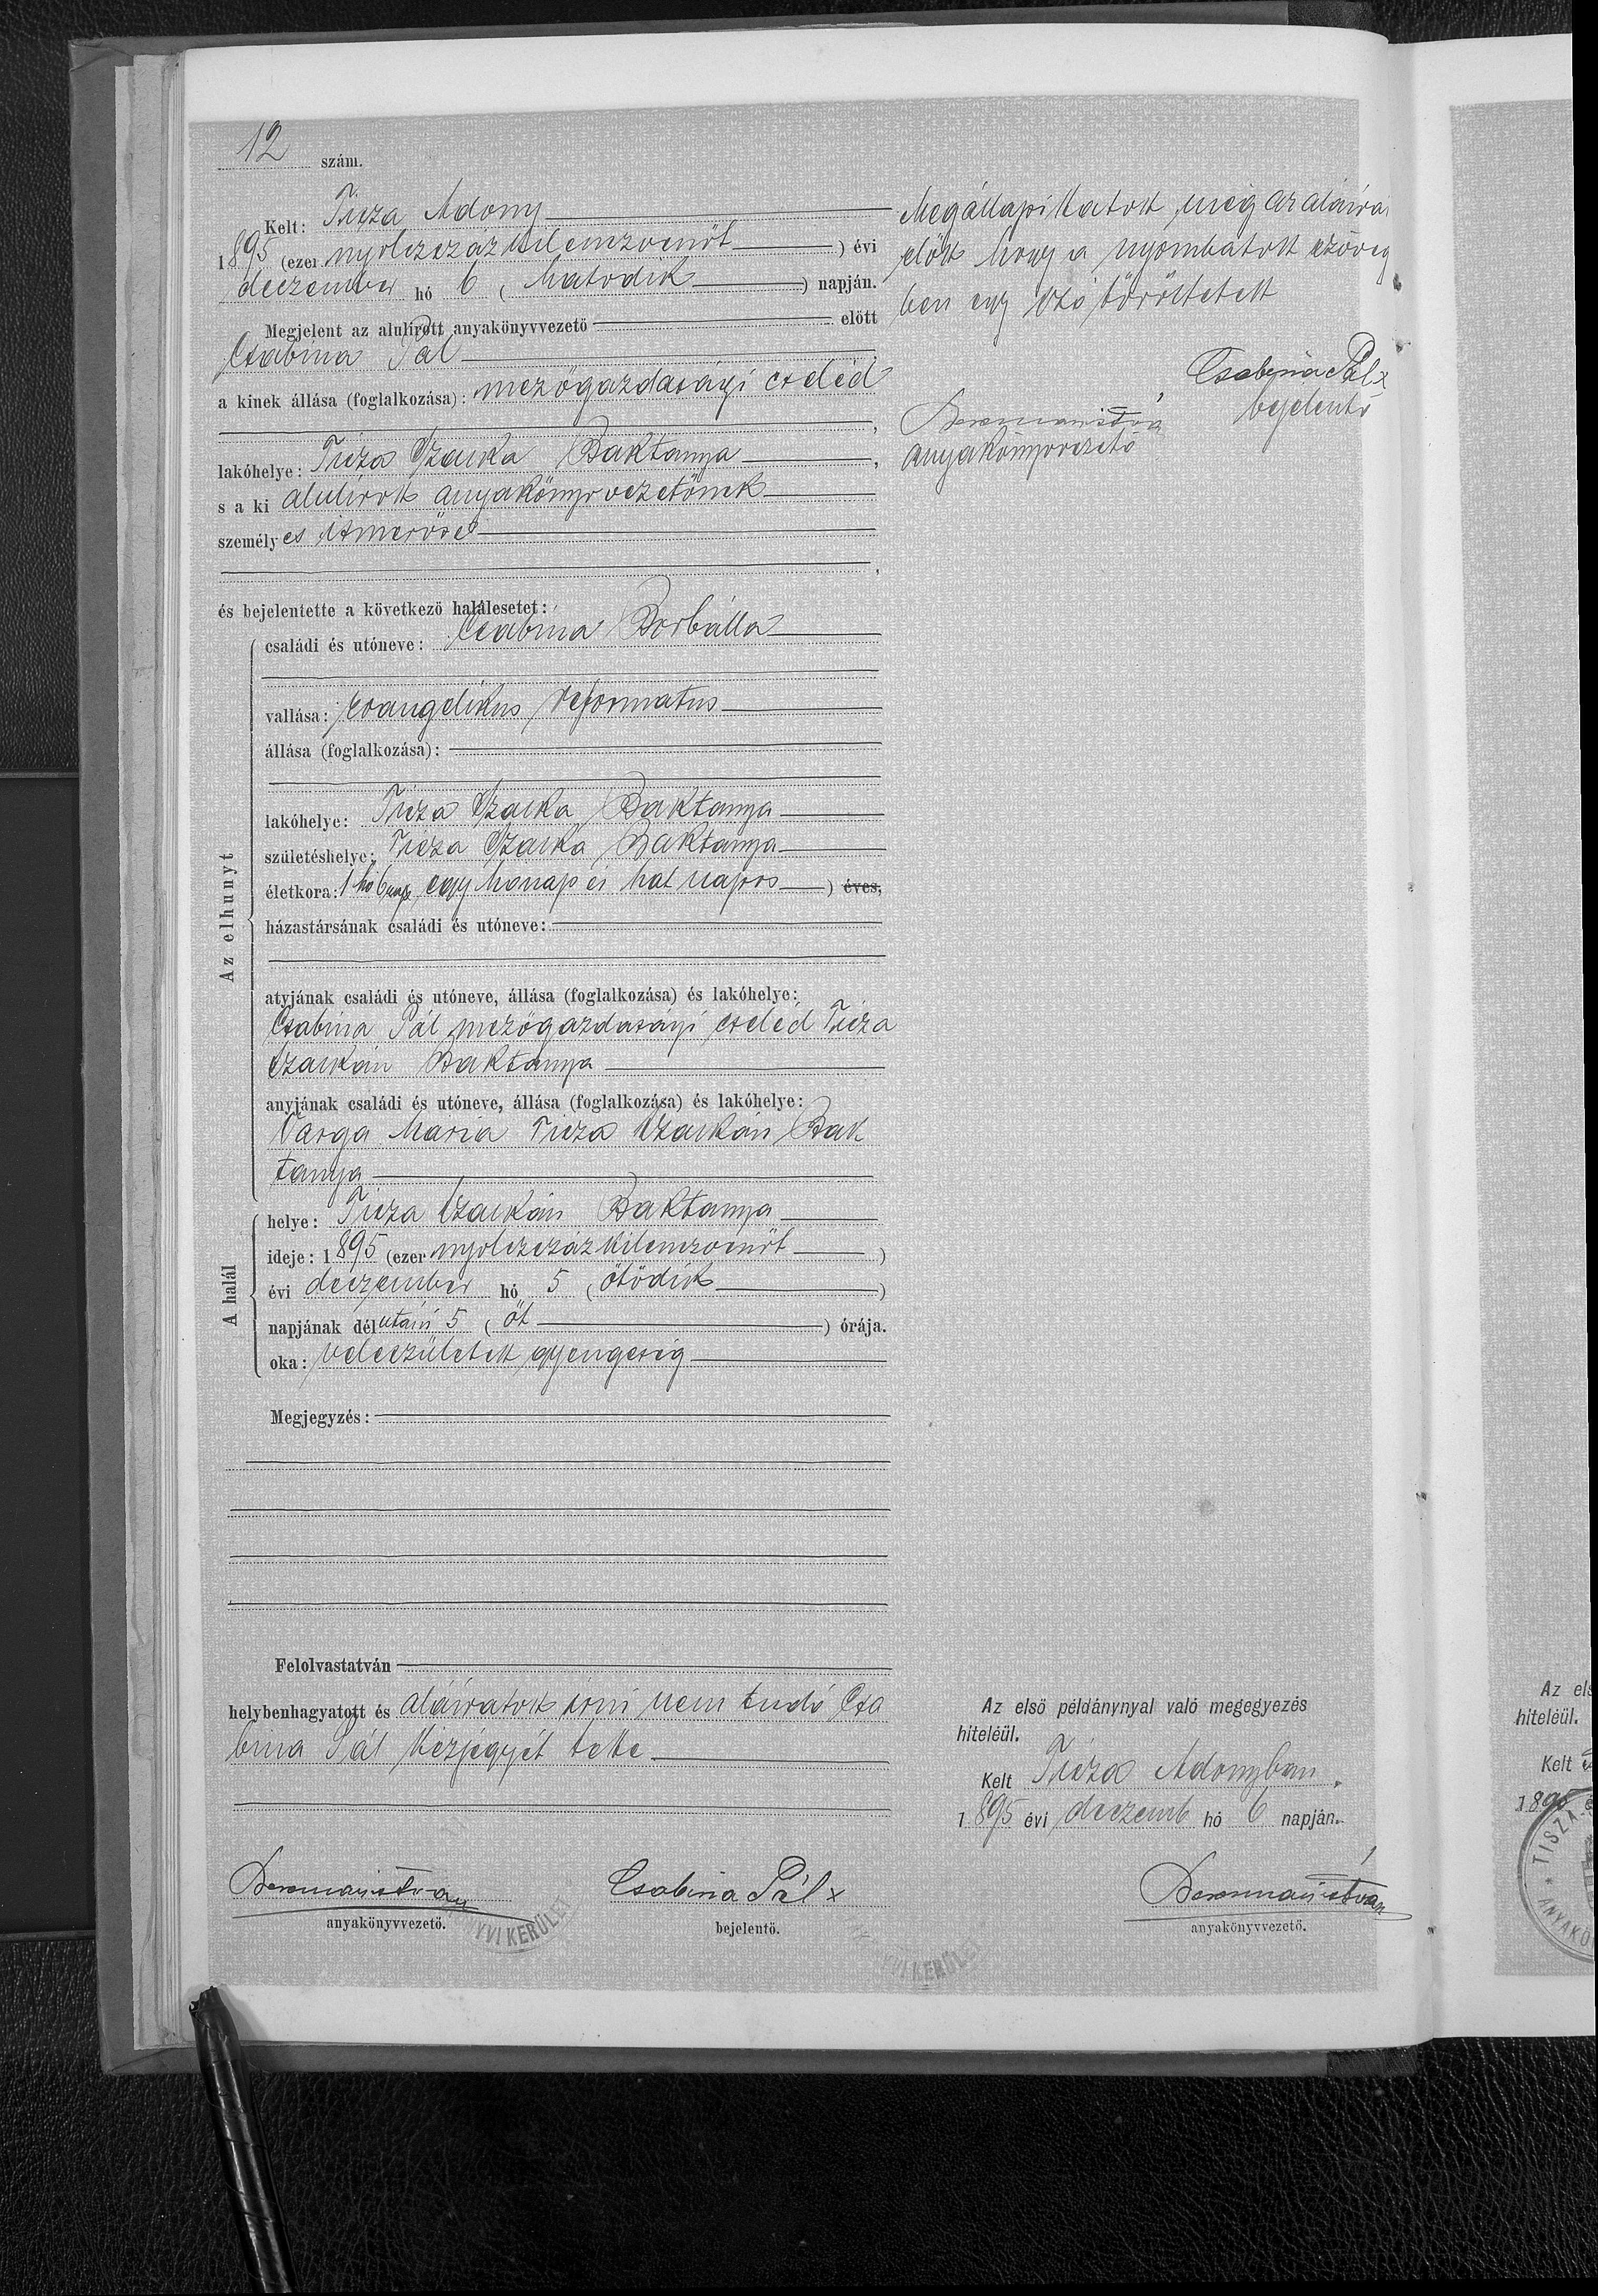 12 szám.
Kelt: Tisza Adony
1895 (ezer nyolczszáz kilenczvenöt) évi
deczember hó 6 (hatodik) napján.
Megjelent az alulírott anyakönyvvezető előtt
Csabina Pál
a kinek állása (foglalkozása): mezőgazdasági cseléd
lakóhelye: Tisza Szalka Baktanya,
s a ki alulírott anyakönyvvezetőnek
személyes ismerőse
,
és bejelentette a következő halálesetet:
Az elhunyt
családi és utóneve: Csabina Borbálla
vallása: evangélikus reformatus
állása (foglalkozása):
lakóhelye: Tisza Szalka Baktanya
születéshelye: Tisza Szalka Baktanya
életkora: 1 hó 6 nap, egy hónap és hat napos) éves,
házastársának családi és utóneve:
atyjának családi és utóneve, állása (foglalkozása) és lakóhelye:
Csabina Pál mezőgazdasági cseléd Tisza
Szalkán Baktanya
anyjának családi és utóneve, állása (foglalkozása) és lakóhelye:
Varga Maria Tisza Szalkán Bak
tanya
A halál
helye: Tisza Szalkán Baktanya
ideje: 1895 (ezer nyolczszáz kilenczvenöt)
évi deczember hó 5 (ötödik)
napjának délután 5 (öt) órája.
oka: veleszületett gyengeség
Megjegyzés:
Felolvastatván
helybenhagyatott és aláiratott irni nem tudó Csa
bina Pál kézjegyét tette
anyakönyvvezető.
Csabina Pál x
bejelentő.
KÖNYVI KERÜLET
Megállapittatott, még az aláirás
előtt hogy a nyombatott szöveg
ben egy szó töröltetett
Csabina Pál x
bejelentő
anyakönyvvezető
Az első példánynyal való megegyezés
hiteléül.
Kelt Tisza Adonyban.
1895 évi deczemb hó 6 napján.
anyakönyvvezető.
VI KERÜLET
Az els
hiteléül.
Kelt
1895
TISZA
ANYAKÖ